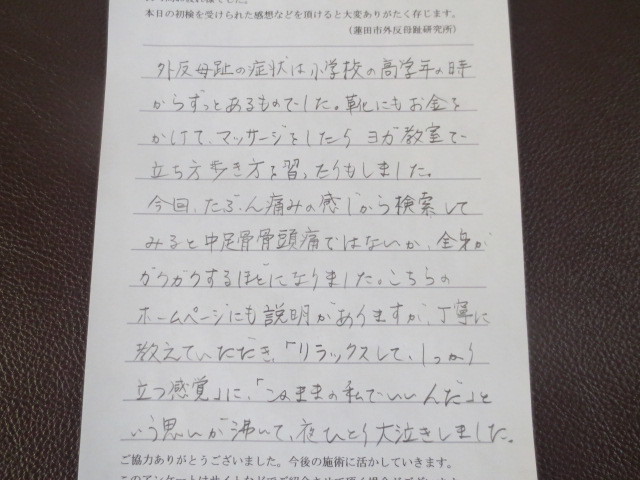 本日の初検を受けられた感想などを頂けると大変ありがたく存じます。
(蓮田市外反母趾研究所)
外反母趾の症状は小学校の高学年の時
からずっとあるものでした。靴にもお金を
かけて、マッサージをしたり ヨガ教室で
立ち方歩き方を習ったりもしました。
今回、たぶん痛みの感じから検索して
みると中足骨骨頭痛ではないか、全身が
ガクガクするほどになりました。こちらの
ホームページにも説明がありますが、丁寧に
教えていただき、「リラックスして、しっかり
立つ感覚」に、「このままの私でいいんだ」と
いう思いが沸いて、夜ひとり大泣きしました。
ご協力ありがとうございました。今後の施術に活かしていきます。